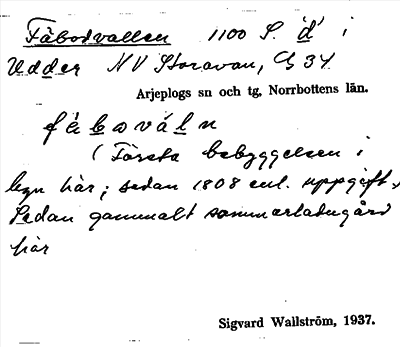 Fäbodvallen 1100 S. 'd' i
Udder NV Storavan, G 34
Arjeplogs sn och tg, Norrbottens län.
fä̀bo̲vál̲n
(Första bebyggelsen i
byn här; sedan 1808 enl. uppgift.
Sedan gammalt sommarladugård
här
Sigvard Wallström, 1937.